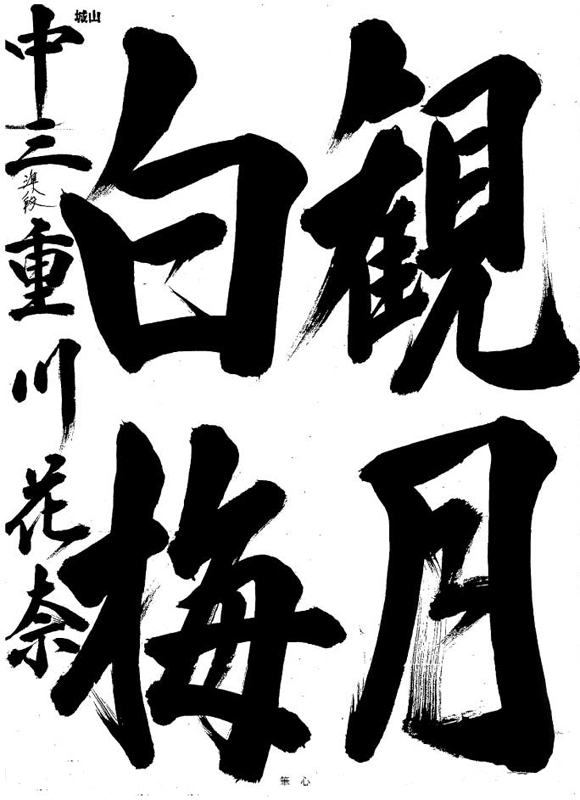 観月
白梅
中三準段重川花奈
城山
笨心